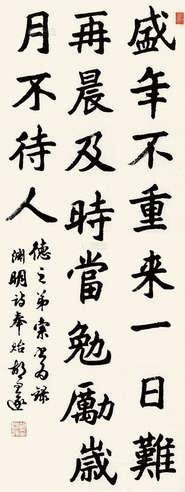 盛年不重来一日難
再晨及時當勉勵歲
月不待人
德之弟索書为錄
渊明詩奉贻